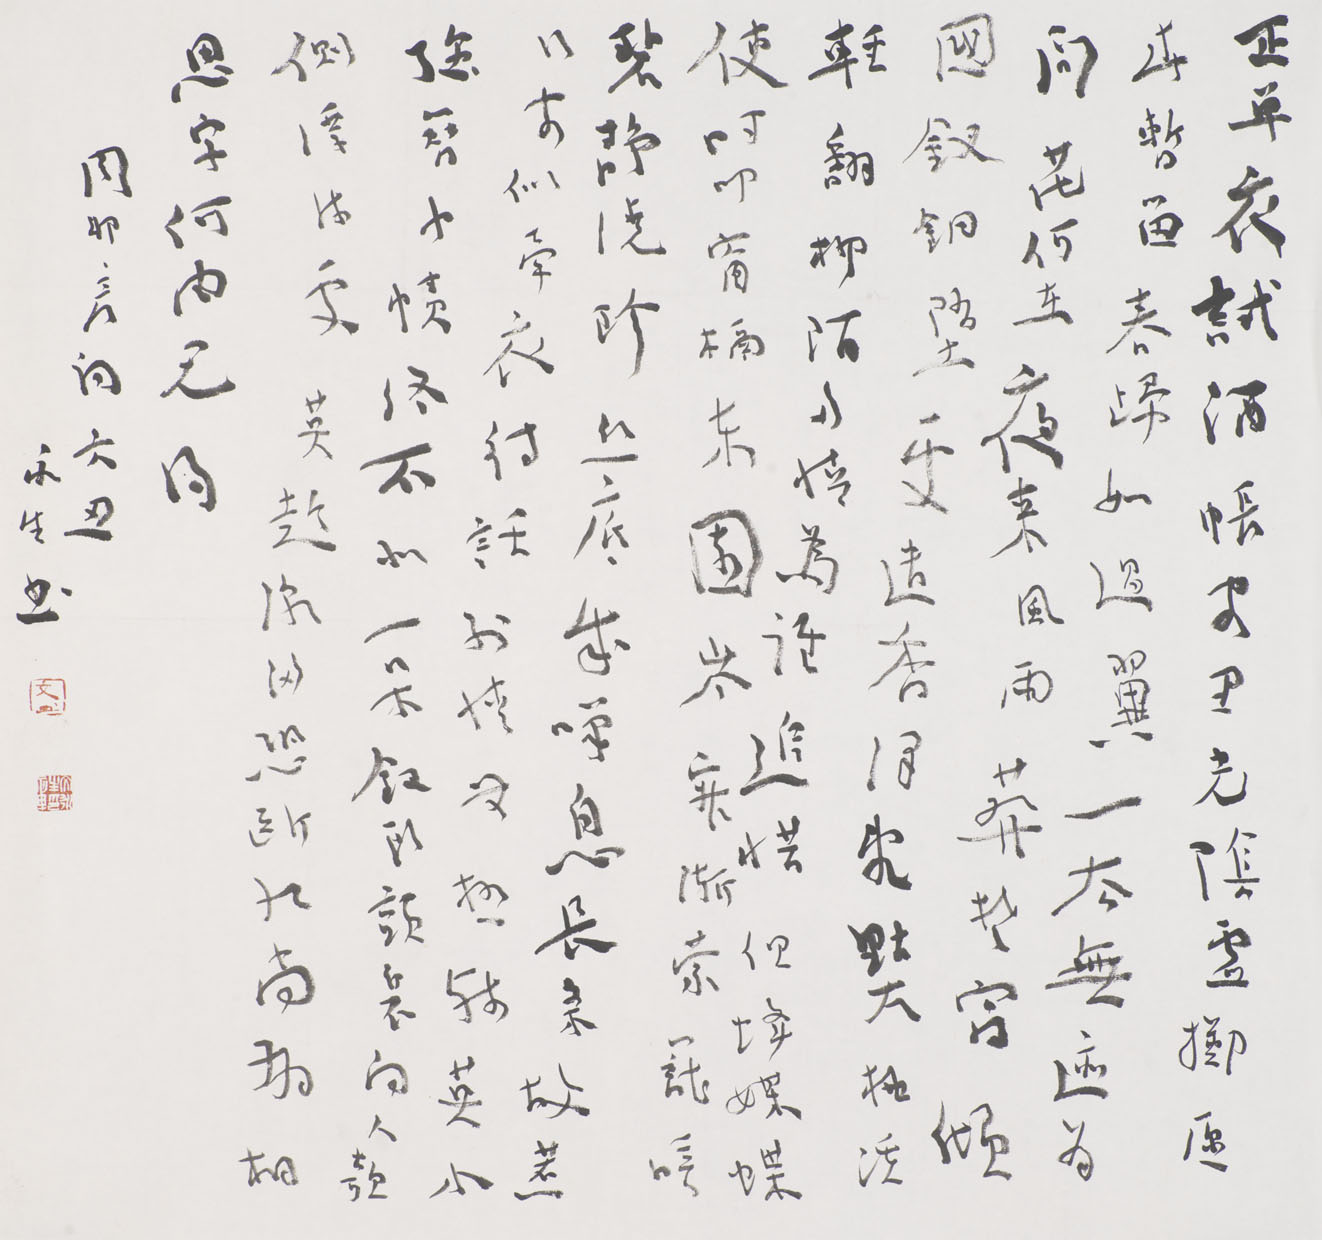 正單衣試酒悵客里光陰虛擲愿
春暫留春歸如過翼一去無迹為
問花何在夜來風雨葬楚宮傾
國釵鈿墮處遺香澤亂點桃蹊
輕翻柳陌多情為誰追惜但蜂媒蝶
使時叩窗槅東園岑寂漸蒙籠暗
碧靜繞珍叢底成嘆息長條故惹
行客似牽衣待話別情無極殘英小
強簪巾幘終不似一朵釵頭顫裊向人欹
側漂流處莫趁潮汐恐斷紅尚有相
思字何由見得
周邦彥詞六丑
永生书